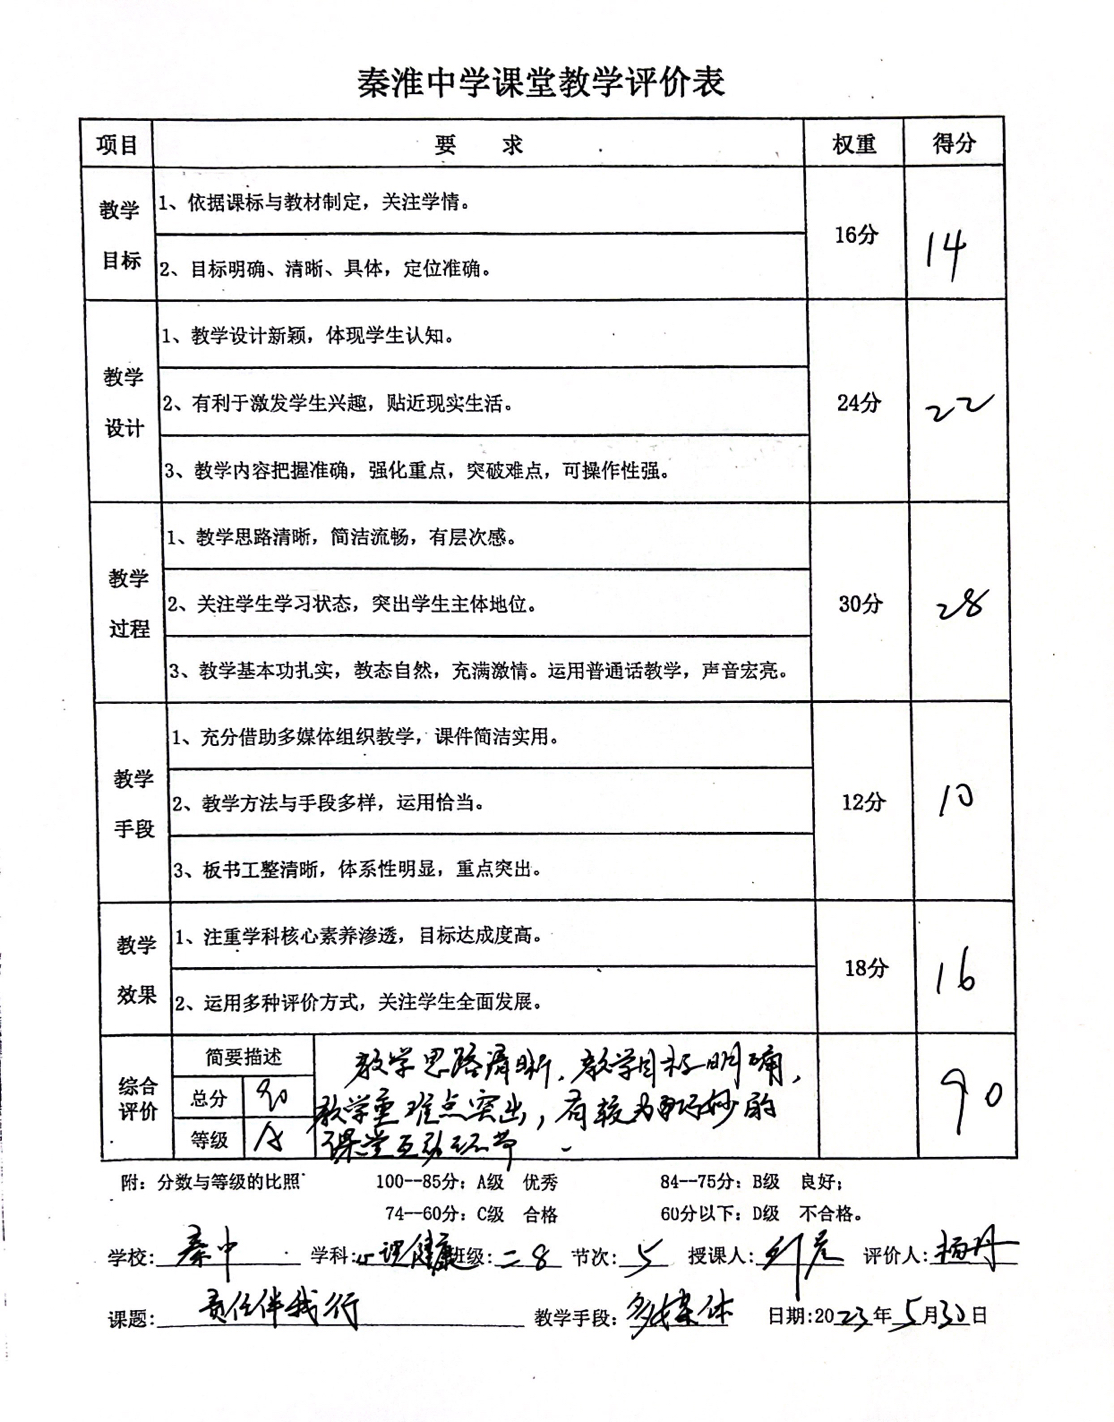 秦淮中学课堂教学评价表
项目 要 求 权重 得分
教学目标 16分 14
1、依据课标与教材制定，关注学情。
2、目标明确、清晰、具体，定位准确。
教学设计 24分 22
1、教学设计新颖，体现学生认知。
2、有利于激发学生兴趣，贴近现实生活。
3、教学内容把握准确，强化重点，突破难点，可操作性强。
教学过程 30分 28
1、教学思路清晰，简洁流畅，有层次感。
2、关注学生学习状态，突出学生主体地位。
3、教学基本功扎实，教态自然，充满激情。运用普通话教学，声音宏亮。
教学手段 12分 10
1、充分借助多媒体组织教学，课件简洁实用。
2、教学方法与手段多样，运用恰当。
3、板书工整清晰，体系性明显，重点突出。
教学效果 18分 16
1、注重学科核心素养渗透，目标达成度高。
2、运用多种评价方式，关注学生全面发展。
综合评价 90
简要描述
总分 90
等级 A
教学思路清晰，教学目标明确，
教学重难点突出，有较为巧妙的
课堂互动环节
附：分数与等级的比照 100--85分：A级 优秀 84--75分：B级 良好；
74--60分：C级 合格 60分以下：D级 不合格。
学校：秦中 学科：心理健康 班级：二8 节次：5 授课人： 评价人：杨丹
课题：责任伴我行 教学手段：多媒体 日期:2023年5月30日